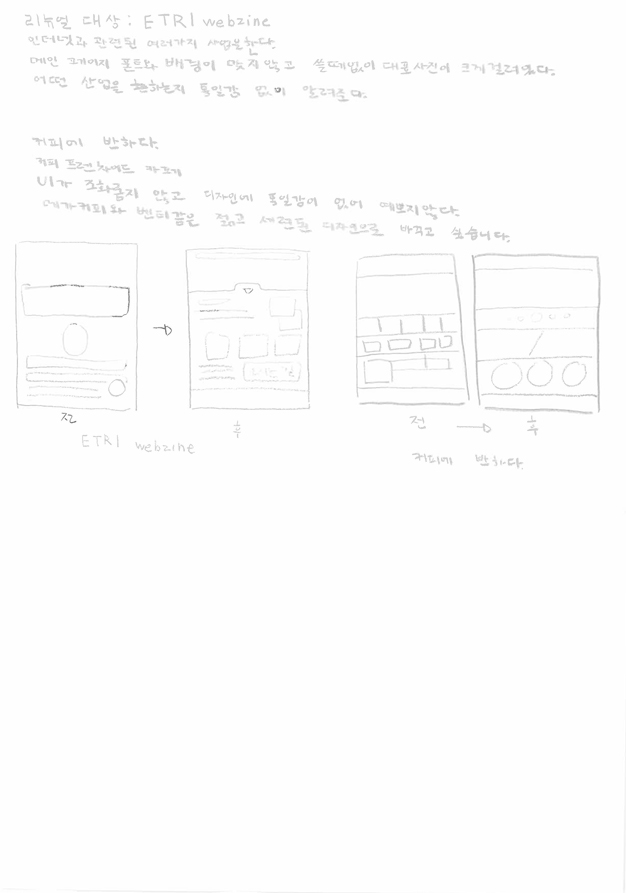 리뉴얼 대상 : ETRI webzine
인터넷과 관련된 여러가지 사업을 한다.
메인 페이지 폰트와 배경이 맞지 않고 쓸떼없이 대표사진이 크게 걸려있다.
어떤 산업을 하는지 통일감 없이 알려준다.
커피에 반하다.
커피 프렌차이드 카페
UI가 조화롭지 않고 디자인에 통일감이 없어 예쁘지않다.
메가커피와 벤티같은 젊고 세련된 디자인으로 바꾸고 싶습니다.
전
후
ETRI webzine
전
후
커피에 반하다.